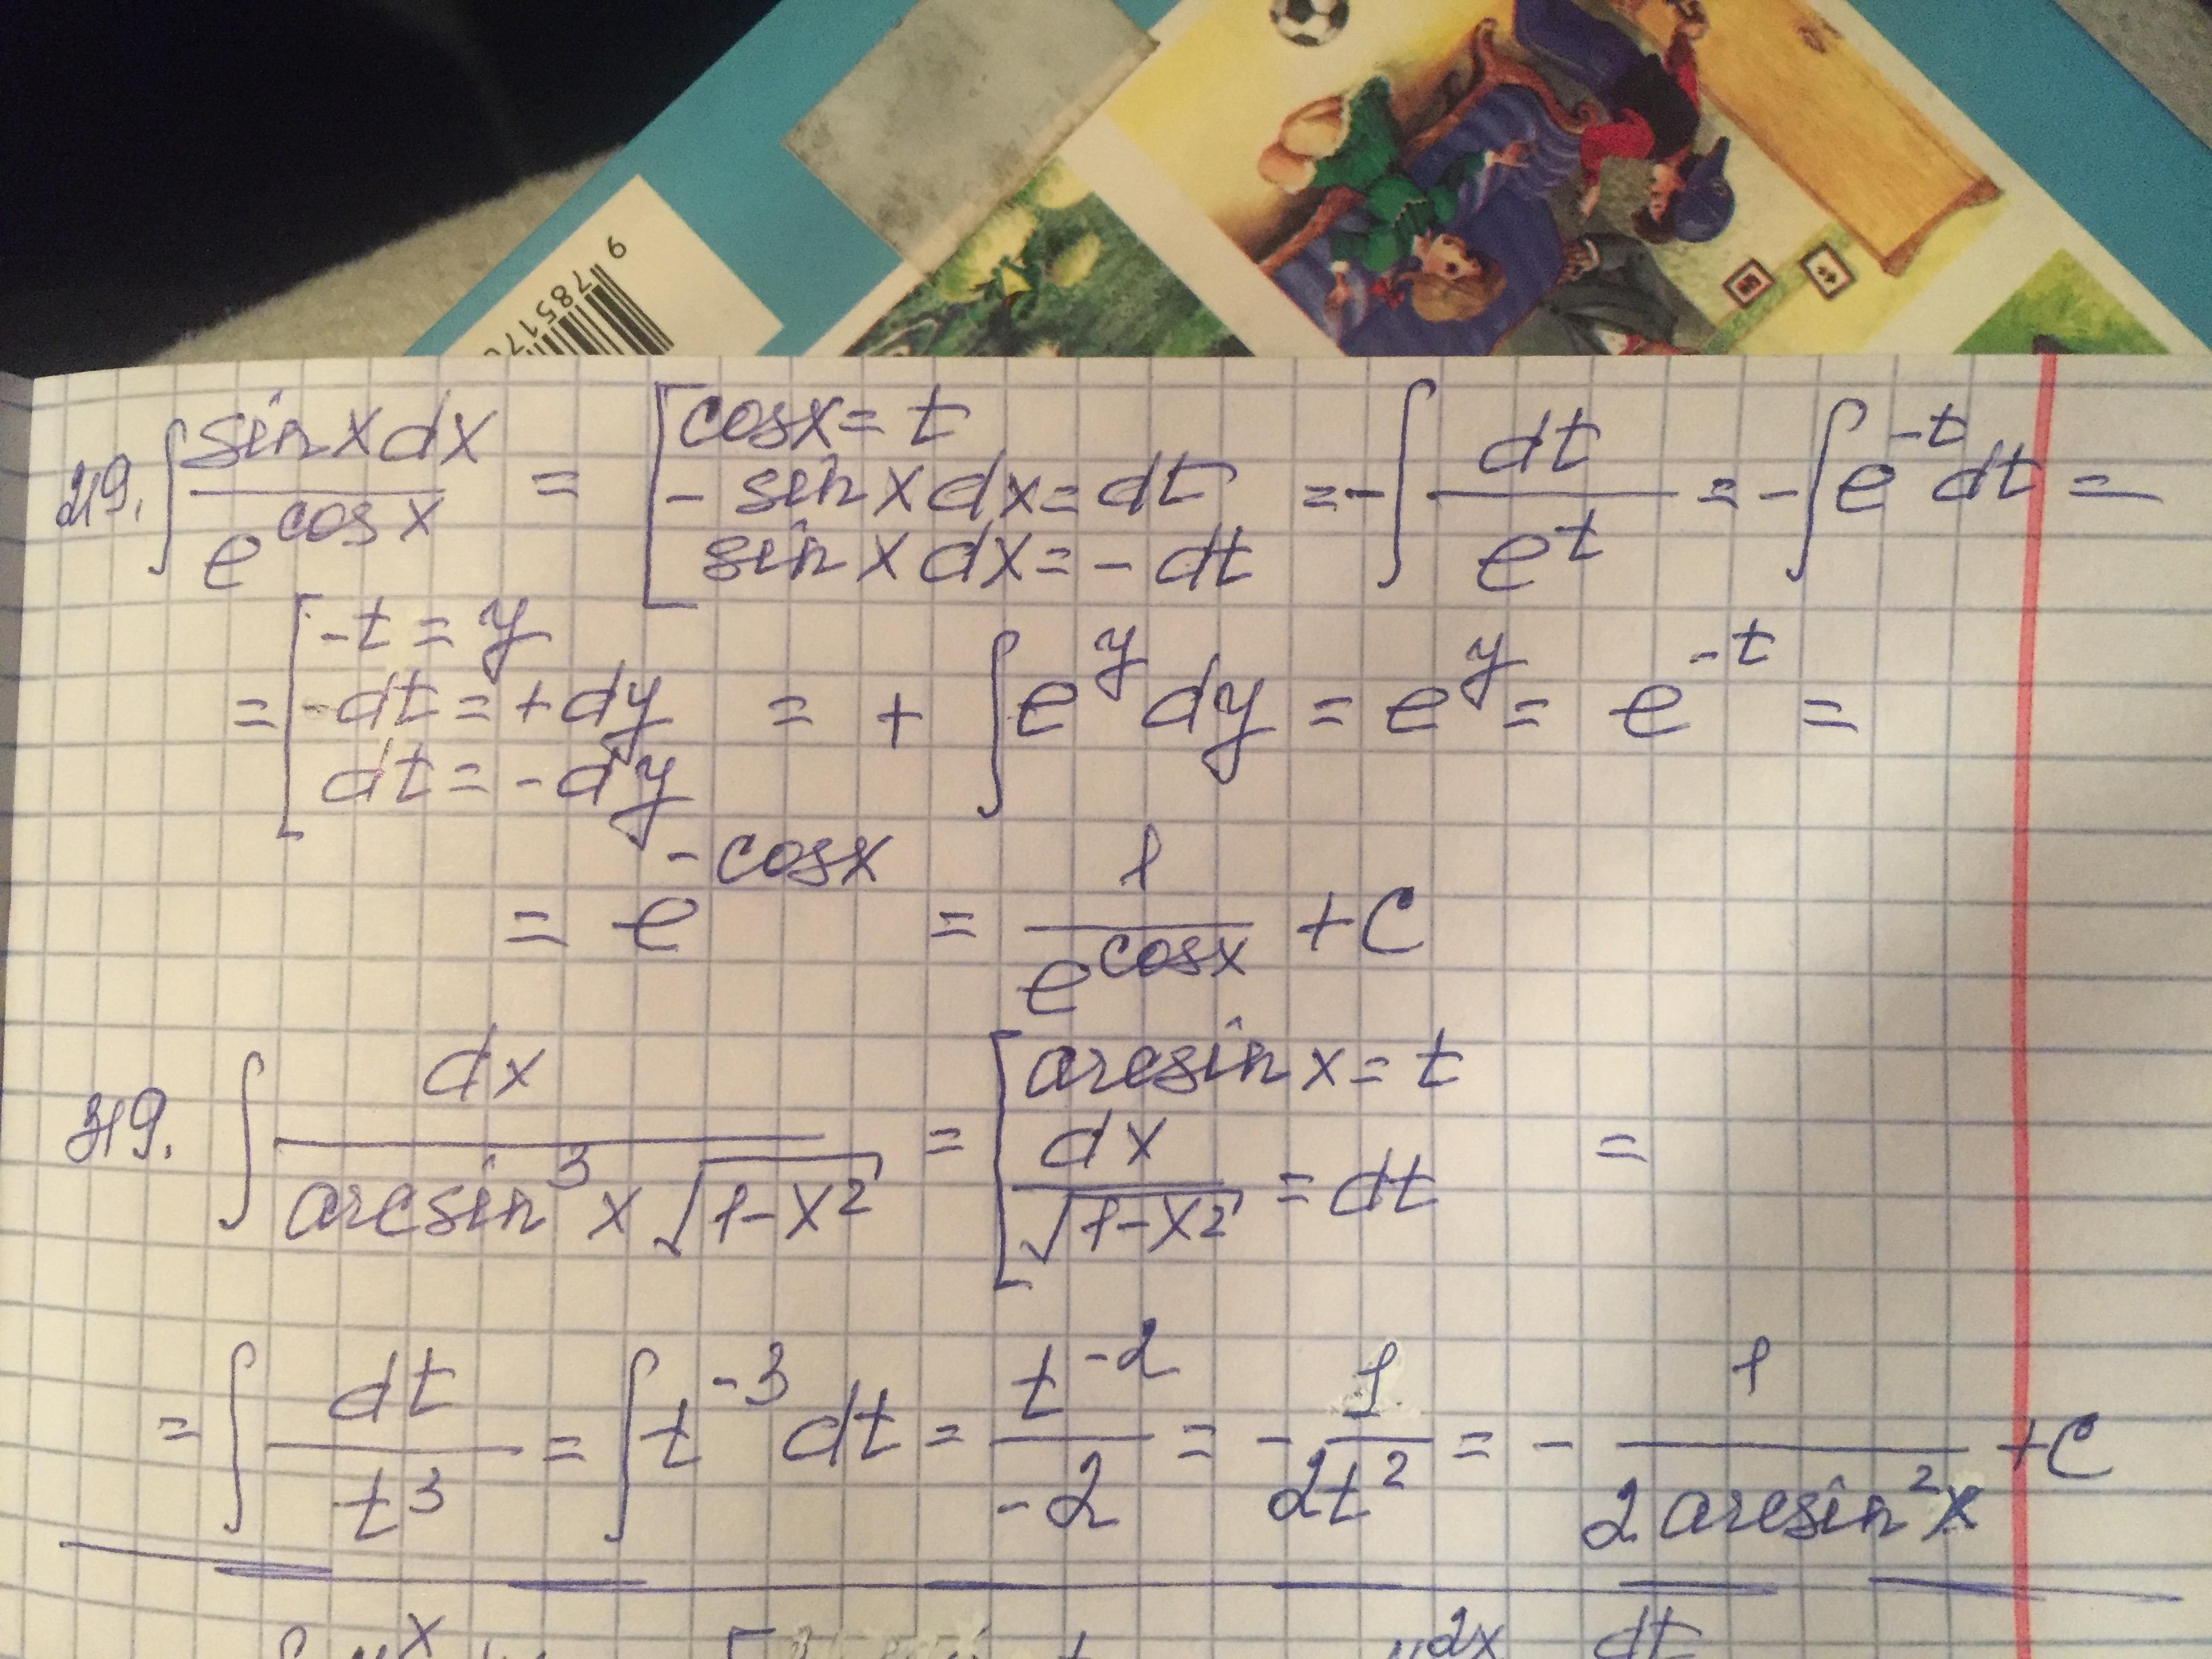 9 78517
219. ∫ sin x dx / e^cos x = [ cos x = t
- sin x dx = dt
sin x dx = - dt = - ∫ dt / e^t = - ∫ e^-t dt =
= [ -t = y
-dt = + dy
dt = - dy = + ∫ e^y dy = e^y = e^-t =
= e^-cos x = 1 / e^cos x + C
319. ∫ dx / arcsin³ x √1-x² = [ arcsin x = t
dx / √1-x² = dt =
= ∫ dt / t³ = ∫ t^-3 dt = t^-2 / -2 = - 1 / 2t² = - 1 / 2 arcsin² x + C